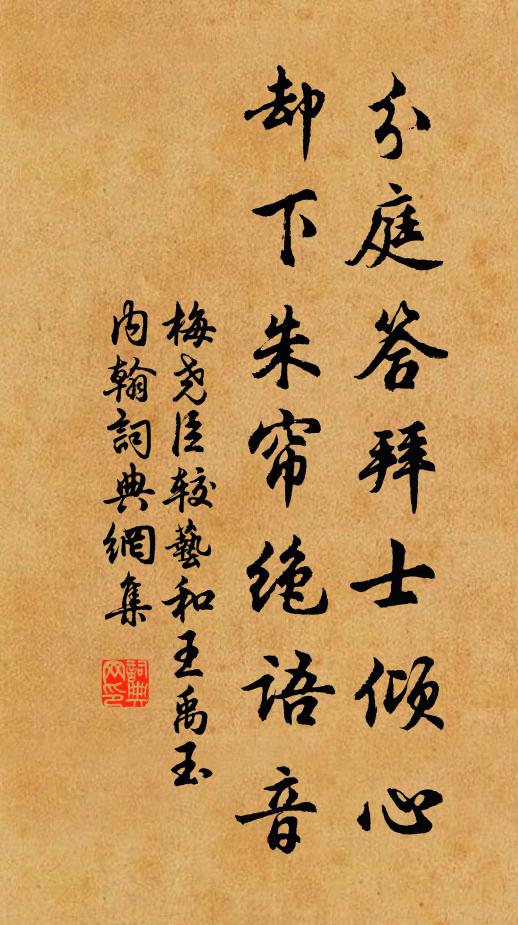 分庭答拜士倾心
却下朱帘绝语音
梅尧臣较藝和王禹玉
内翰詞典網集
詞典網印